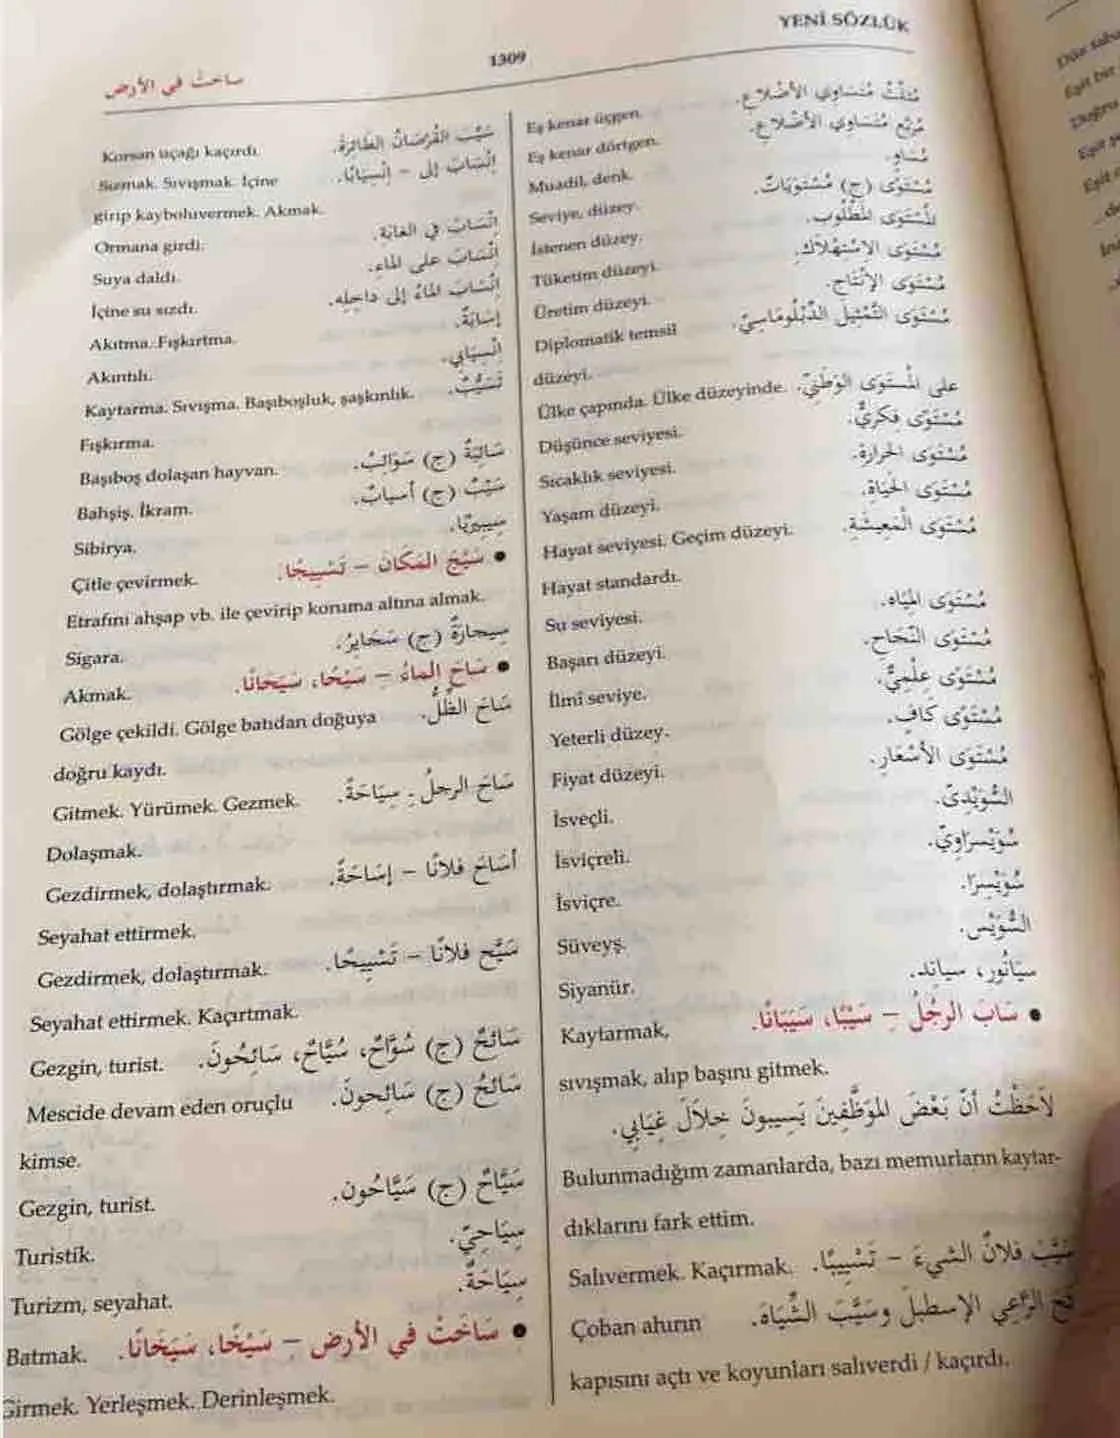 YENİ SÖZLÜK
1309
ساخت في الأرض
مُثَلَّثٌ مُتَسَاوِي الأَضْلاَعِ. Eş kenar üçgen.
مُرَبَّع مُتَسَاوِي الأَضْلاَعِ. Eş kenar dörtgen.
مُسَاوٍ. Muadil, denk.
مُسْتَوًى (ج) مُسْتَوَيَاتٌ. Seviye, düzey.
المُسْتَوَى المَطْلُوب. İstenen düzey.
مُسْتَوَى الاسْتِهْلاَكِ. Tüketim düzeyi.
مُسْتَوَى الإِنْتَاجِ. Üretim düzeyi.
مُسْتَوَى التَّمْثِيل الدِّبْلُومَاسِيّ. Diplomatik temsil
düzeyi.
على المُسْتَوَى الوَطَنِيّ. Ülke çapında. Ülke düzeyinde.
مُسْتَوًى فِكْرِيٌّ. Düşünce seviyesi.
مُسْتَوَى الحَرَارَةِ. Sıcaklık seviyesi.
مُسْتَوَى الحَيَاةِ. Yaşam düzeyi.
مُسْتَوَى الْمَعِيشَةِ. Hayat seviyesi. Geçim düzeyi.
Hayat standardı.
مُسْتَوَى المِيَاه. Su seviyesi.
مُسْتَوَى النَّجَاح. Başarı düzeyi.
مُسْتَوًى عِلْمِيٌّ. İlmî seviye.
مُسْتَوًى كَافٍ. Yeterli düzey.
مُسْتَوَى الأَسْعَارِ. Fiyat düzeyi.
السُّوَيْدِيّ. İsveçli.
سُوَيْسْرَاوِيّ. İsviçreli.
سُوَيْسِرَا. İsviçre.
السُّوَيْس. Süveyş.
سيَانُور، سيانِد. Siyanür.
• سَابَ الرجُلُ – سَيْبًا، سَيَبَانًا. Kaytarmak,
sıvışmak, alıp başını gitmek.
لاَحَظْتُ أَنَّ بَعْضَ المُوَظَّفِينَ يَسِيبونَ خِلاَلَ غِيَابِي.
Bulunmadığım zamanlarda, bazı memurların kaytar-
dıklarını fark ettim.
سَيَّبَ فلانٌ الشيءَ – تَسْيِيبًا. Salıvermek. Kaçırmak.
الرَّاعِي الإسطبلَ وسَيَّبَ الشِّيَاهَ. Çoban ahırın
kapısını açtı ve koyunları salıverdi / kaçırdı.
سَيَّبَ القُرْصَانُ الطَّائِرَةَ. Korsan uçağı kaçırdı.
اِنْسَابَ إلى – اِنْسِيَابًا. Sızmak. Sıvışmak. İçine
girip kayboluvermek. Akmak.
اِنْسَابَ في الغابَة. Ormana girdi.
اِنْسَابَ على المَاءِ. Suya daldı.
اِنْسَابَ المَاءُ إلى داخِلِه. İçine su sızdı.
إسَابَةٌ. Akıtma. Fışkırtma.
اِنْسِيَابِي. Akıntılı.
تَسَيُّبٌ. Kaytarma. Sıvışma. Başıboşluk, şaşkınlık.
Fışkırma.
سَائِبَةٌ (ج) سَوَائِبُ. Başıboş dolaşan hayvan.
سَيْبٌ (ج) أسيابٌ. Bahşiş. İkram.
سِيبِيرْيَا. Sibirya.
• سَيَّجَ المَكَانَ – تَسْيِيجًا. Çitle çevirmek.
Etrafını ahşap vb. ile çevirip koruma altına almak.
سِيجارَةٌ (ج) سَجَايِرُ. Sigara.
• سَاحَ المَاءُ – سَيْحًا، سَيَحَانًا. Akmak.
سَاحَ الظِّلُّ. Gölge çekildi. Gölge batıdan doğuya
doğru kaydı.
سَاحَ الرجلُ – سِيَاحَةً. Gitmek. Yürümek. Gezmek.
Dolaşmak.
أسَاحَ فلانًا – إسَاحَةً. Gezdirmek, dolaştırmak.
Seyahat ettirmek.
سَيَّح فلانًا – تَسْيِيحًا. Gezdirmek, dolaştırmak.
Seyahat ettirmek. Kaçırtmak.
سَائحٌ (ج) سُوَّاحٌ، سُيَّاحٌ، سَائِحُونَ. Gezgin, turist.
سَائحُ (ج) سَائِحونَ. Mescide devam eden oruçlu
kimse.
سَيَّاحٌ (ج) سَيَّاحُون. Gezgin, turist.
سِيَاحِيّ. Turistik.
سِيَاحَةٌ. Turizm, seyahat.
• سَاخَتْ في الأرضِ – سَيْخًا، سَيَخَانًا. Batmak.
Girmek. Yerleşmek. Derinleşmek.